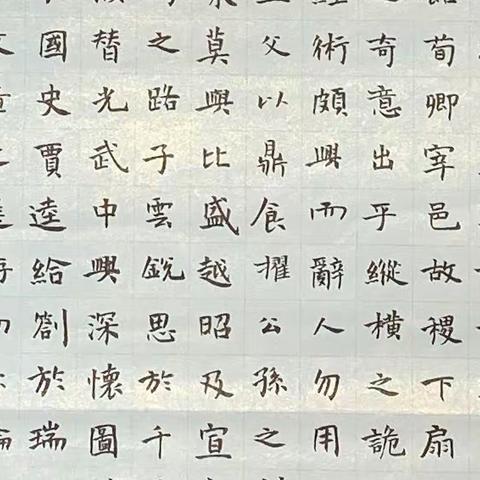 荀卿宰邑故稷下扇
奇意出乎縱橫之詭
術頗興而辭人勿用
父以鼎食擢公孫之
莫與比盛越昭及宣
之路子雲銳思於千
替光武中興深懷圖
國史賈逵給劄於瑞